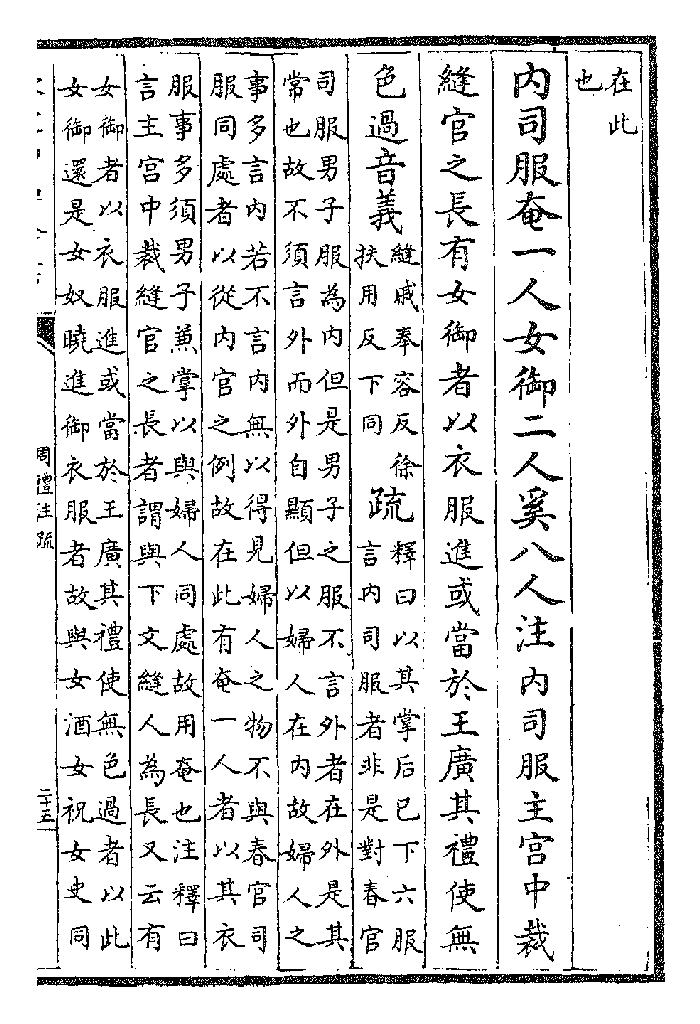 在此
也
内司服奄一人女御二人奚八人注内司服主宫中裁
縫官之長有女御者以衣服進或當於王廣其禮使無
色過音義
縫戚奉容反徐
扶用反下同
疏
釋曰以其掌后已下六服
言内司服者非是對春官
司服男子服為内但是男子之服不言外者在外是其
常也故不須言外而外自顯但以婦人在内故婦人之
事多言内若不言内無以得見婦人之物不與春官司
服同處者以從内官之例故在此有奄一人者以其衣
服事多須男子兼掌以與婦人同處故用奄也注釋曰
言主宫中裁縫官之長者謂與下文縫人為長又云有
女御者以衣服進或當於王廣其禮使無色過者以此
女御還是女奴曉進御衣服者故與女酒女祝女史同
周禮注疏
二十五